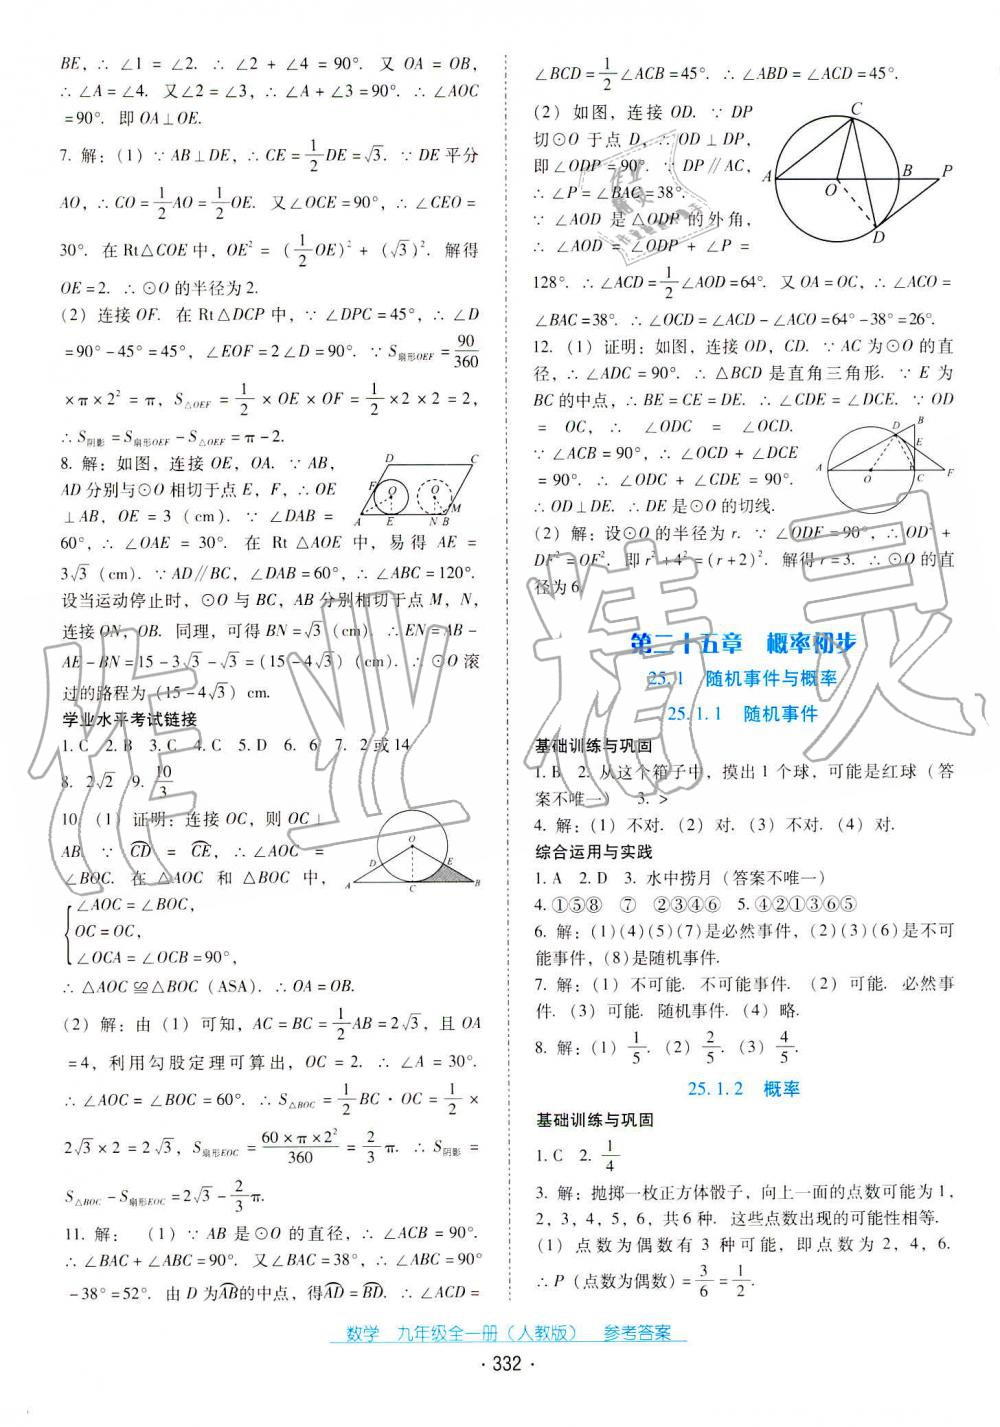 BE, ∴ ∠1 = ∠2. ∴ ∠2 + ∠4 = 90°. 又 OA = OB,
∴ ∠A = ∠4. 又∠2 = ∠3, ∴ ∠A + ∠3 = 90°. ∴ ∠AOC
= 90°. 即 OA⊥OE.
7. 解:(1) ∵ AB⊥DE, ∴ CE = 1/2 DE = √3. ∵ DE 平分
AO, ∴ CO = 1/2 AO = 1/2 OE. 又∠OCE = 90°, ∴ ∠CEO =
30°. 在 Rt△COE 中, OE² = (1/2 OE)² + (√3)². 解得
OE = 2. ∴ ⊙O 的半径为 2.
(2) 连接 OF. 在 Rt△DCP 中, ∵ ∠DPC = 45°, ∴ ∠D
= 90° - 45° = 45°, ∠EOF = 2∠D = 90°. ∵ S扇形OEF = 90/360
× π × 2² = π, S△OEF = 1/2 × OE × OF = 1/2 × 2 × 2 = 2,
∴ S阴影 = S扇形OEF - S△OEF = π - 2.
8. 解:如图,连接 OE, OA. ∵ AB,
AD 分别与⊙O 相切于点 E, F, ∴ OE
⊥AB, OE = 3 (cm). ∵ ∠DAB =
60°, ∴ ∠OAE = 30°. 在 Rt △AOE 中, 易得 AE =
3√3 (cm). ∵ AD∥BC, ∠DAB = 60°, ∴ ∠ABC = 120°.
设当运动停止时, ⊙O 与 BC, AB 分别相切于点 M, N,
连接 ON, OB. 同理, 可得 BN = √3 (cm). ∴ EN = AB -
AE - BN = 15 - 3√3 - √3 = (15 - 4√3) cm. ∴ ⊙O 滚
过的路程为 (15 - 4√3) cm.
学业水平考试链接
1. C 2. B 3. C 4. C 5. D 6. 6 7. 2 或 14
8. 2√2 9. 10/3
10. (1) 证明:连接 OC, 则 OC⊥
AB. ∵ CD = CE, ∴ ∠AOC =
∠BOC. 在 △AOC 和 △BOC 中,
∠AOC = ∠BOC,
OC = OC,
∠OCA = ∠OCB = 90°,
∴ △AOC ≌ △BOC (ASA). ∴ OA = OB.
(2) 解:由 (1) 可知, AC = BC = 1/2 AB = 2√3, 且 OA
= 4, 利用勾股定理可算出, OC = 2. ∴ ∠A = 30°.
∴ ∠AOC = ∠BOC = 60°. ∴ S△BOC = 1/2 BC · OC = 1/2 ×
2√3 × 2 = 2√3, S扇形EOC = 60 × π × 2²/360 = 2/3 π. ∴ S阴影 =
S△BOC - S扇形EOC = 2√3 - 2/3 π.
11. 解: (1) ∵ AB 是⊙O 的直径, ∴ ∠ACB = 90°.
∴ ∠BAC + ∠ABC = 90°. 又∠BAC = 38°, ∴ ∠ABC = 90°
- 38° = 52°. 由 D 为AB的中点, 得AD = BD. ∴ ∠ACD =
∠BCD = 1/2 ∠ACB = 45°. ∴ ∠ABD = ∠ACD = 45°.
(2) 如图, 连接 OD. ∵ DP
切⊙O 于点 D, ∴ OD⊥DP,
即∠ODP = 90°. ∵ DP∥AC,
∴ ∠P = ∠BAC = 38°.
∵ ∠AOD 是 △ODP 的外角,
∴ ∠AOD = ∠ODP + ∠P =
128°. ∴ ∠ACD = 1/2 ∠AOD = 64°. 又 OA = OC, ∴ ∠ACO =
∠BAC = 38°. ∴ ∠OCD = ∠ACD - ∠ACO = 64° - 38° = 26°.
12. (1) 证明:如图, 连接 OD, CD. ∵ AC 为⊙O 的直
径, ∴ ∠ADC = 90°. ∴ △BCD 是直角三角形. ∵ E 为
BC 的中点, ∴ BE = CE = DE. ∴ ∠CDE = ∠DCE. ∵ OD
= OC, ∴ ∠ODC = ∠OCD.
∵ ∠ACB = 90°, ∴ ∠OCD + ∠DCE
= 90°. ∴ ∠ODC + ∠CDE = 90°.
∴ OD⊥DE. ∴ DE 是⊙O 的切线.
(2) 解:设⊙O 的半径为 r. ∵ ∠ODF = 90°, ∴ OD² +
DF² = OF². 即 r² + 4² = (r + 2)². 解得 r = 3. ∴ ⊙O 的直
径为 6.
第二十五章 概率初步
25.1 随机事件与概率
25.1.1 随机事件
基础训练与巩固
1. B 2. 从这个箱子中, 摸出 1 个球, 可能是红球 (答
案不唯一) 3. >
4. 解:(1) 不对. (2) 对. (3) 不对. (4) 对.
综合运用与实践
1. A 2. D 3. 水中捞月 (答案不唯一)
4. ①⑤⑧ ⑦ ②③④⑥ 5. ④②①③⑥⑤
6. 解:(1)(4)(5)(7)是必然事件, (2)(3)(6)是不可
能事件, (8)是随机事件.
7. 解:(1) 不可能. 不可能事件. (2) 可能. 必然事
件. (3) 可能. 随机事件. (4) 略.
8. 解:(1) 1/5. (2) 2/5. (3) 4/5.
25.1.2 概率
基础训练与巩固
1. C 2. 1/4
3. 解:抛掷一枚正方体骰子, 向上一面的点数可能为 1,
2, 3, 4, 5, 6, 共 6 种. 这些点数出现的可能性相等.
(1) 点数为偶数有 3 种可能, 即点数为 2, 4, 6.
∴ P (点数为偶数) = 3/6 = 1/2.
数学 九年级全一册(人教版) 参考答案
· 332 ·
作业精灵